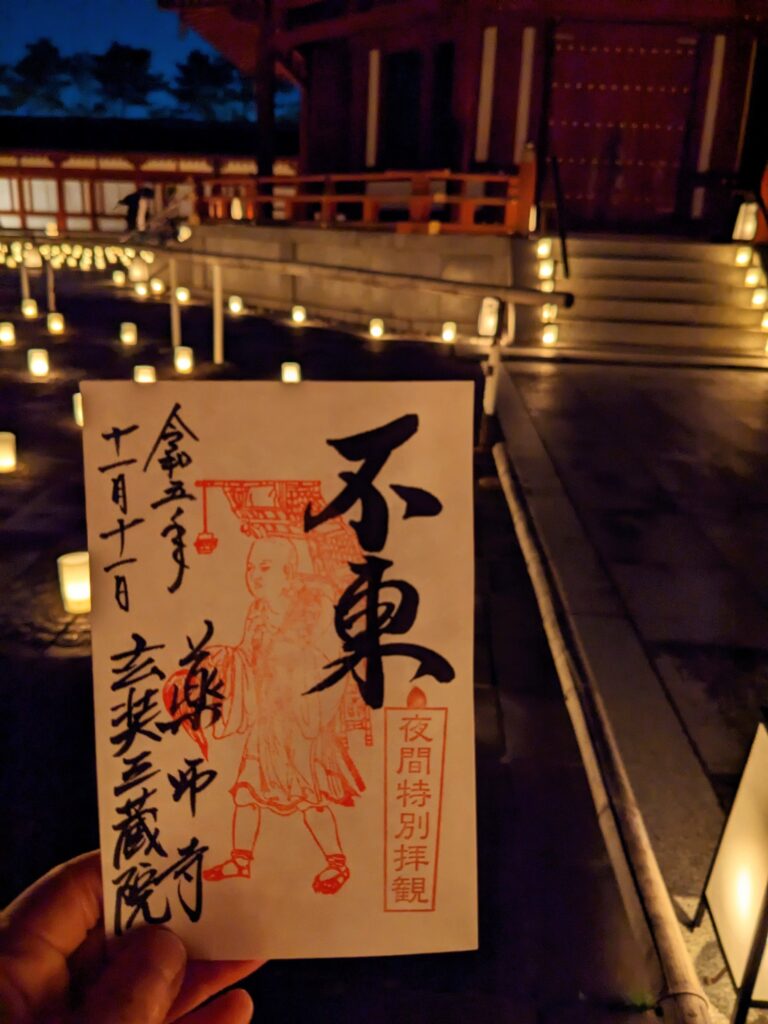 不東
夜間特別拝観
令和五年
十一月十一日
薬師寺
玄奘三蔵院